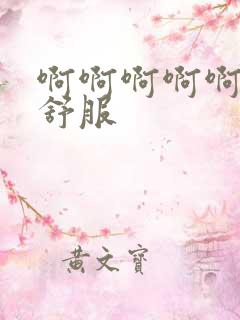 啊啊啊啊啊
舒服
黄文宝